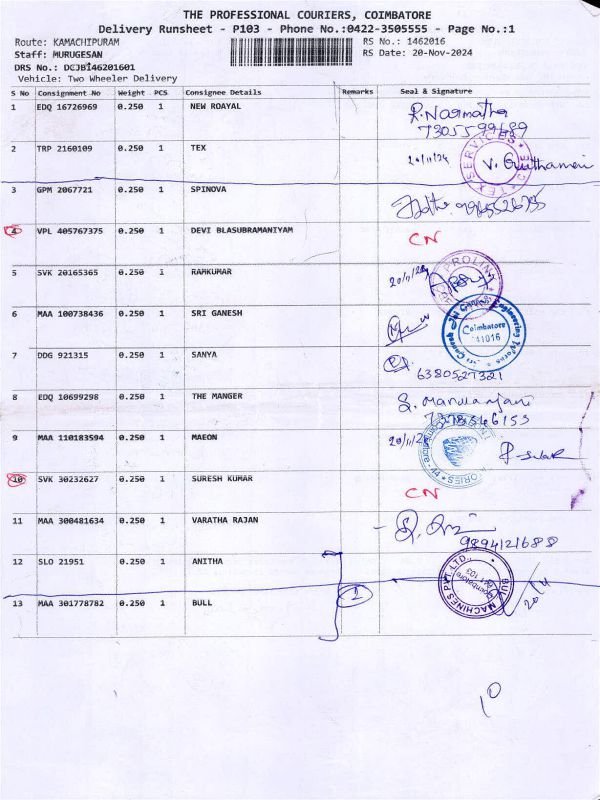 THE PROFESSIONAL COURIERS, COIMBATORE
Delivery Runsheet - P103 - Phone No.:0422-3505555 - Page No.:1
Route: KAMACHIPURAM RS No.: 1462016
Staff: MURUGESAN RS Date: 20-Nov-2024
DRS No.: DCJB146201601
Vehicle: Two Wheeler Delivery
S No Consignment No Weight PCS Consignee Details Remarks Seal & Signature
1 EDQ 16726969 0.250 1 NEW ROAYAL R. Narmatha
7305599689
2 TRP 2160109 0.250 1 TEX 20/11/24
3 GPM 2067721 0.250 1 SPINOVA
4 VPL 405767375 0.250 1 DEVI BLASUBRAMANIYAM CN
5 SVK 20165365 0.250 1 RAMKUMAR 20/11/24 PROLINE
6 MAA 100738436 0.250 1 SRI GANESH Coimbatore
7 DDG 921315 0.250 1 SANYA
6380527321
8 EDQ 10699298 0.250 1 THE MANGER
9 MAA 110183594 0.250 1 MAEON 20/11/24
10 SVK 30232627 0.250 1 SURESH KUMAR CN
11 MAA 300481634 0.250 1 VARATHA RAJAN
9894121688
12 SLO 21951 0.250 1 ANITHA
13 MAA 301778782 0.250 1 BULL 2 BULL MACHINES PVT LTD.
10